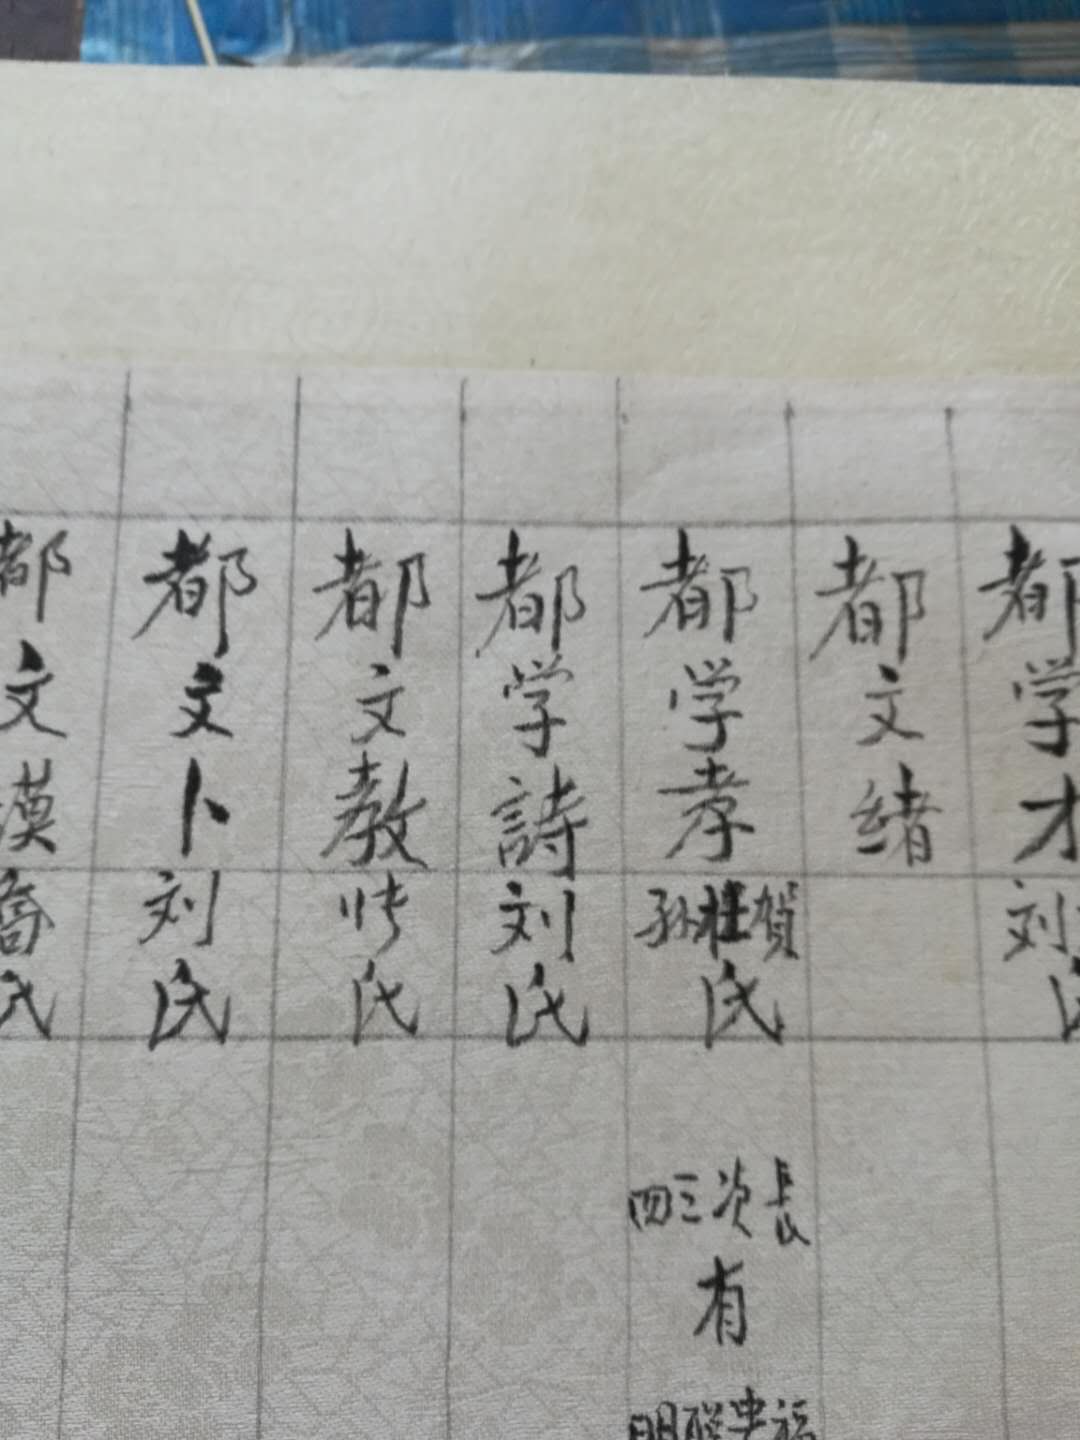 都学才
刘氏
都文绪
都学孝
賀 孙
氏
長次三四
有
福 聯明
都学詩
刘氏
都文教
张氏
都文卜
刘氏
都文漢
喬氏